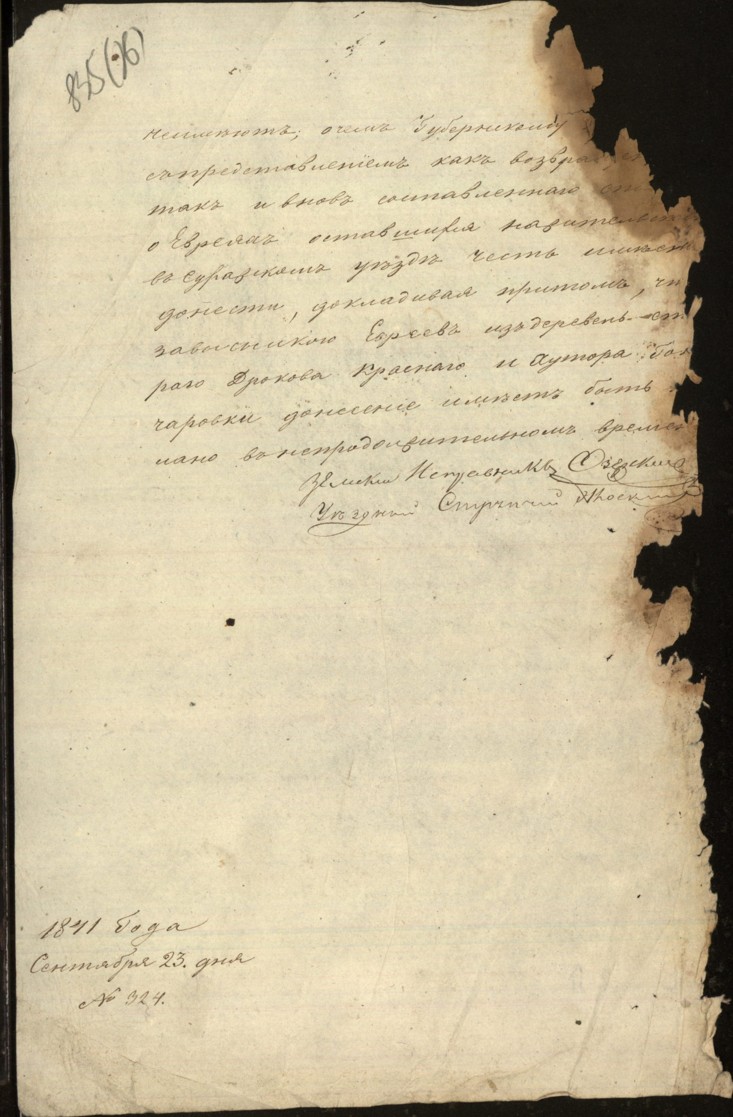 835 (76)
неимеютъ; очемъ Губернскому
съпредставленіемъ какъ возвра
такъ и вновь составленнаго
о Евреяхъ оставшихся
въ Суражскомъ уѣздѣ честь имѣетъ
донести, докладывая притомъ,
завысылкою Евреевъ издеревень
раго Дрокова Краснаго и Хутора
чаровки донесеніе имѣетъ быть
лано въ непродолжительномъ време
Земскій Исправникъ
Уѣздный Стряпчій
1841 Года
Сентября 23. дня
№ 324.